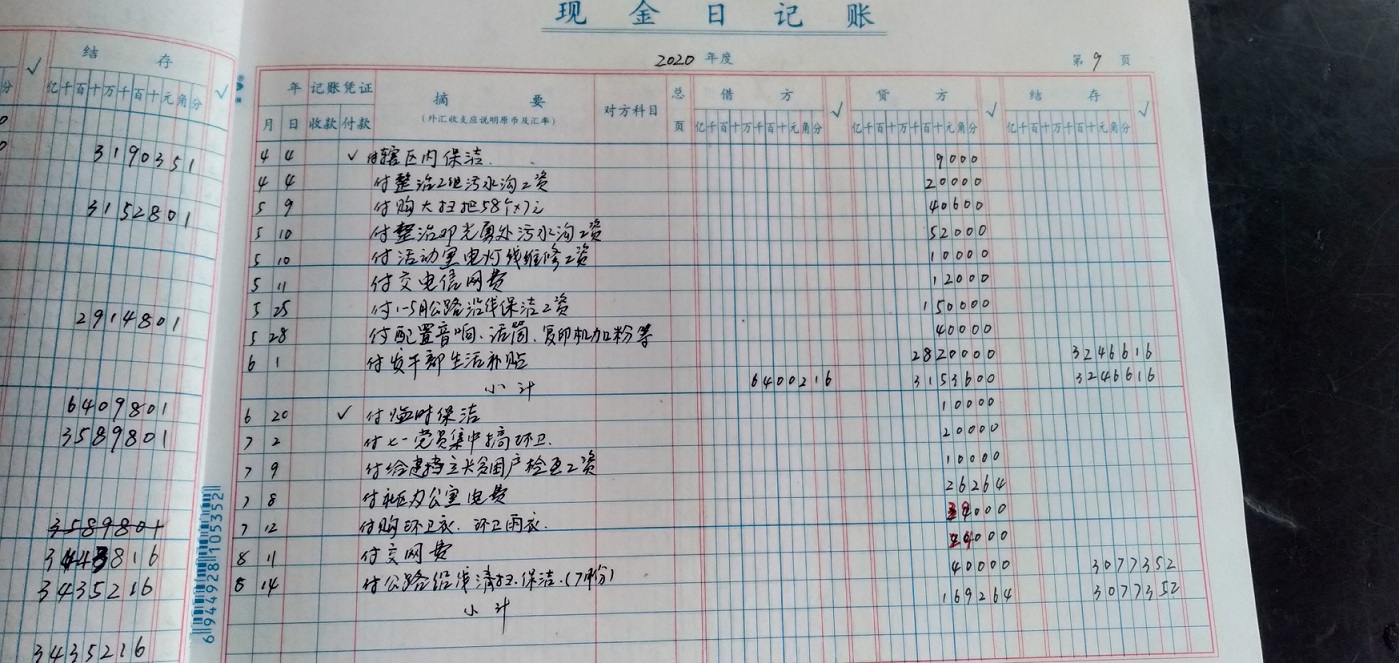 现金日记账
2020 年度
第 9 页
结存
√
亿千百十万千百十元角分
3190351
3152801
2914801
6409801
3589801
3589801
3435216
3435216
6944928105352
年 记账凭证 摘要 对方科目 总页 借方 √ 贷方 √ 结存 √
月 日 收款 付款 (外汇收支应说明原币及汇率) 亿千百十万千百十元角分 亿千百十万千百十元角分 亿千百十万千百十元角分
4 4 √ 付辖区内保洁. 9000
4 4 付整治2组污水沟工资 20000
5 9 付购大扫把58个×7元 40600
5 10 付整治邓光勇处污水沟工资 52000
5 10 付活动室电灯线维修工资 10000
5 11 付交电信网费 12000
5 25 付1-5月公路沿线保洁工资 150000
5 28 付配置音响、话筒、复印机加粉等 40000
6 1 付发干部生活补贴 2820000 3246616
小计 6400216 3153600 3246616
6 20 √ 付临时保洁 10000
7 2 付七一党员集中搞环卫. 20000
7 9 付给建档立卡贫困户检查工资 10000
7 8 付社区办公室电费 26264
7 12 付购环卫衣、环卫雨衣. 000
8 11 付交网费 000
8 14 付公路沿线清扫、保洁.(7月份) 40000 3077352
小计 169264 3077352